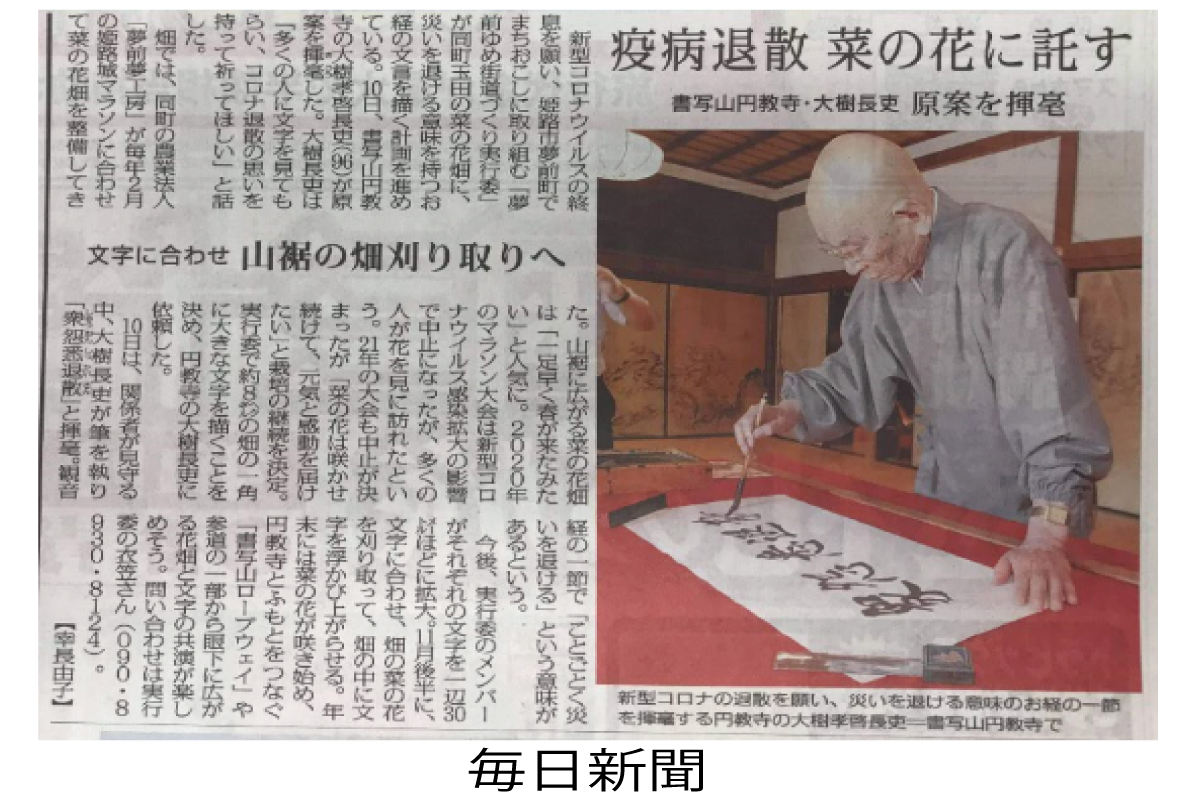 疫病退散 菜の花に託す
書写山円教寺・大樹長吏 原案を揮毫
新型コロナウイルスの終
息を願い、姫路市夢前町で
まちおこしに取り組む「夢
前ゆめ街道づくり実行委」
が同町玉田の菜の花畑に、
災いを退ける意味を持つお
経の文言を描く計画を進め
ている。10日、書写山円教
寺の大樹孝啓長吏(96)が原
案を揮毫した。大樹長吏は
「多くの人に文字を見ても
らい、コロナ退散の思いを
持って祈ってほしい」と話
した。
畑では、同町の農業法人
「夢前夢工房」が毎年2月
の姫路城マラソンに合わせ
て菜の花畑を整備してき
文字に合わせ 山裾の畑刈り取りへ
た。山裾に広がる菜の花畑
は「一足早く春が来たみた
い」と人気に。2020年
のマラソン大会は新型コロ
ナウイルス感染拡大の影響
で中止になったが、多くの
人が花を見に訪れたとい
う。21年の大会も中止が決
まったが「菜の花は咲かせ
続けて、元気と感動を届け
たい」と栽培の継続を決定。
実行委で約8㌶の畑の一角
に大きな文字を描くことを
決め、円教寺の大樹長吏に
依頼した。
10日は、関係者が見守る
中、大樹長吏が筆を執り
「衆怨悉退散」と揮毫。観音
経の一節で「ことごとく災
いを退ける」という意味が
あるという。
今後、実行委のメンバー
がそれぞれの文字を一辺30
㍍ほどに拡大。11月後半に、
文字に合わせ、畑の菜の花
を刈り取って、畑の中に文
字を浮かび上がらせる。年
末には菜の花が咲き始め、
円教寺とふもとをつなぐ
「書写山ロープウェイ」や
参道の一部から眼下に広が
る花畑と文字の共演が楽し
めそう。問い合わせは実行
委の衣笠さん(090・8
930・8124)。
【幸長由子】
新型コロナの退散を願い、災いを退ける意味のお経の一節
を揮毫する円教寺の大樹孝啓長吏＝書写山円教寺で
毎日新聞